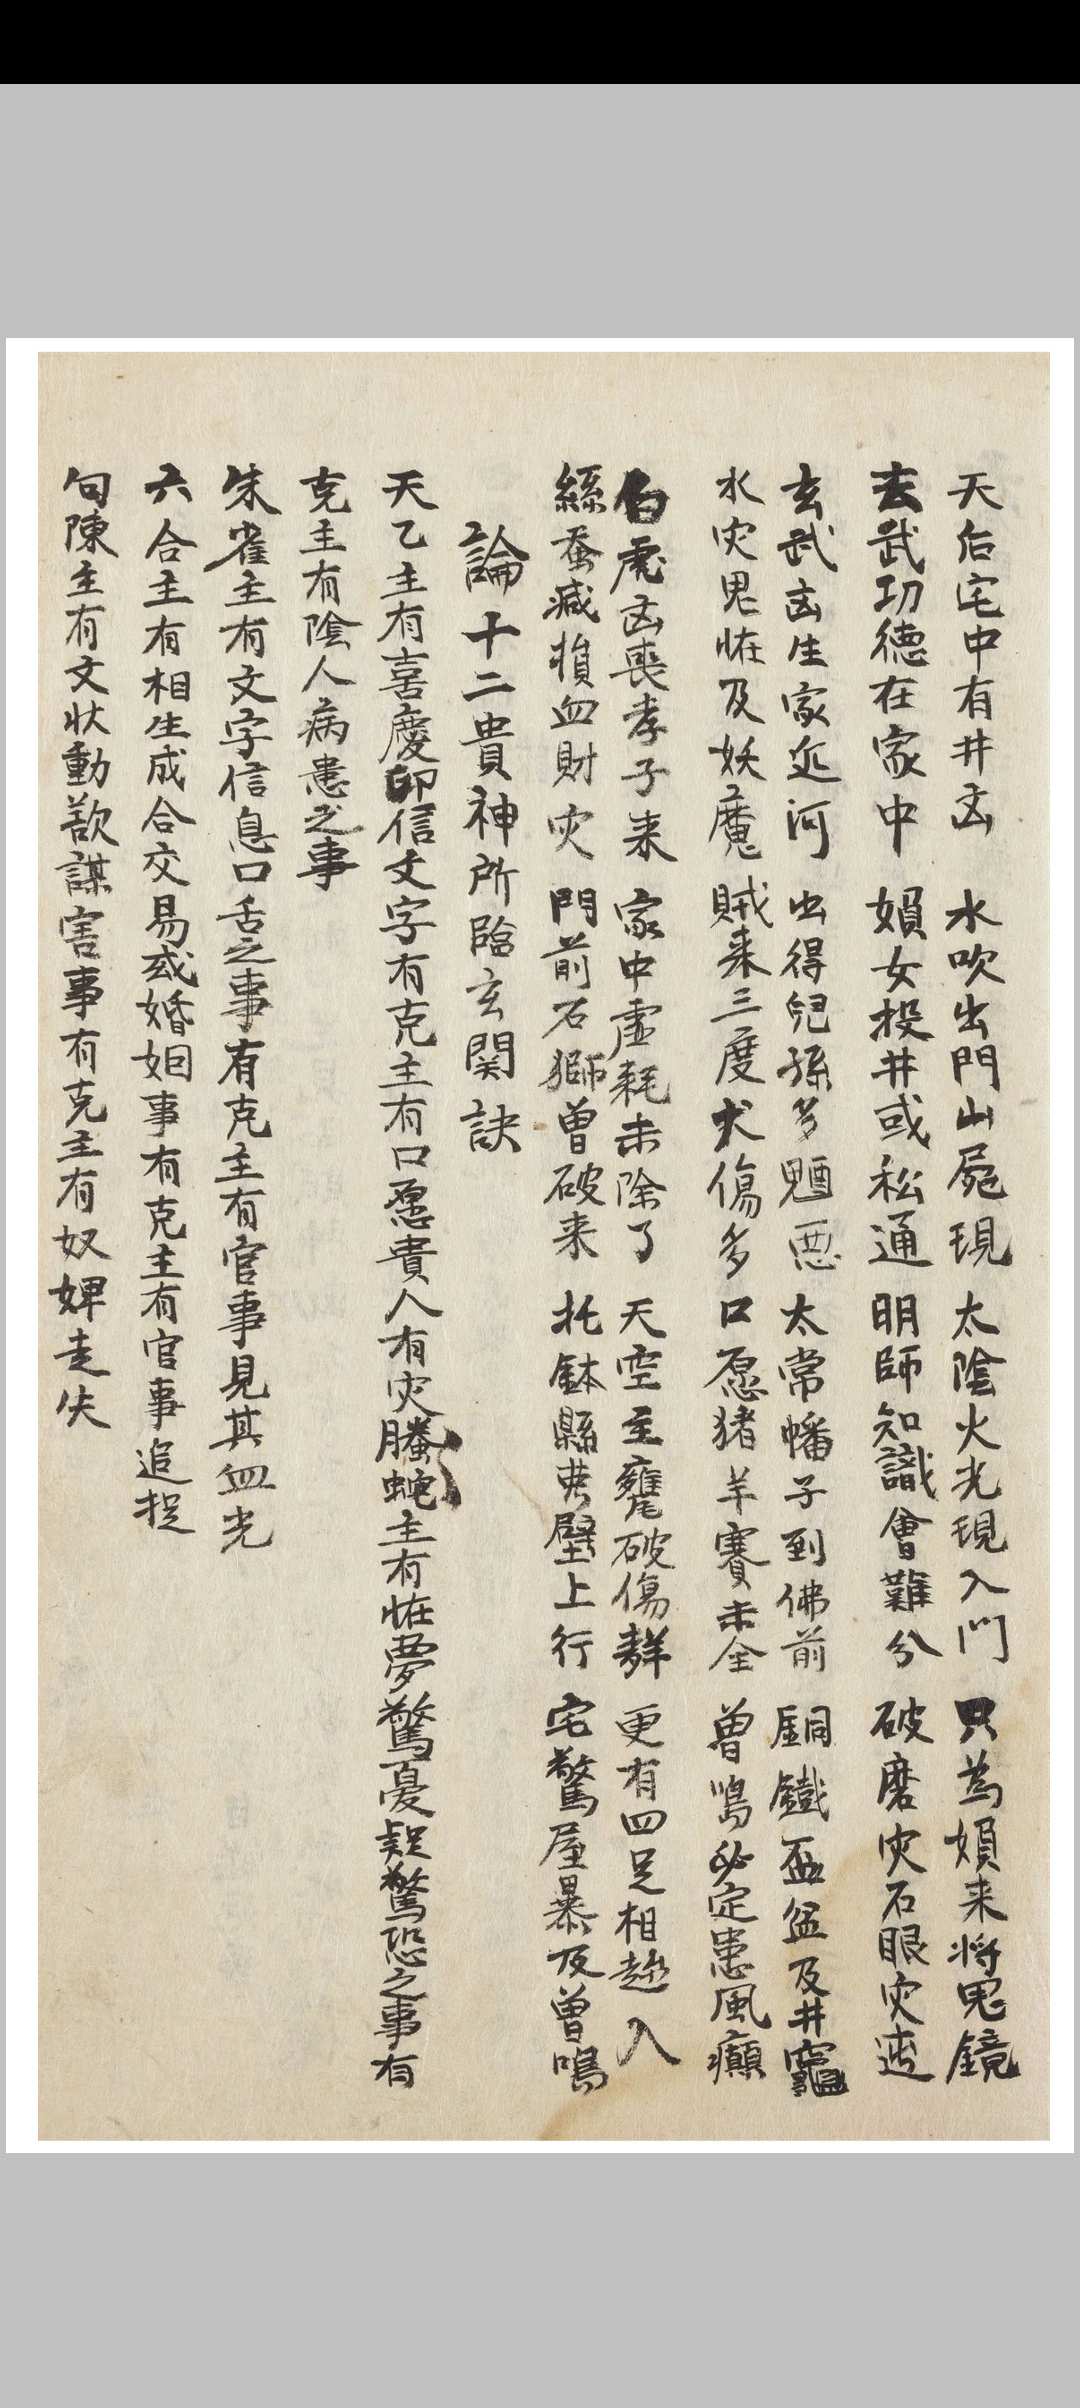 天后宅中有井凶　水吹出門山屍現　太陰火光現入門　只為娘来将鬼鏡
玄武功德在家中　娘女投井或私通　明師知識會難分　破磨灾石眼灾迍
玄武凶生家近河　出得兒孫多魍悪　太常幡子到佛前　銅鐵盃盆及井竈
水灾鬼怪及妖魔　賊来三度犬傷多　口愿猪羊賽未全　曽鳴必定患風癲
白虎凶喪孝子来　家中虚耗未除了　天空主甕破傷群　更有四足相趂入
絲蚕减損血財灾　門前石獅曽破来　托鉢縣壁上行　宅驚屋暴及曽鳴
論十二貴神所臨玄関訣
天乙主有喜慶印信文字有克主有口愿貴人有灾騰蛇主有怪夢驚憂疑驚恐之事有
克主有陰人病患之事
朱雀主有文字信息口舌之事有克主有官事見其血光
六合主有相生成合交易或婚姻事有克主有官事追捉
句陳主有文状動歃謀害事有克主有奴婢走失